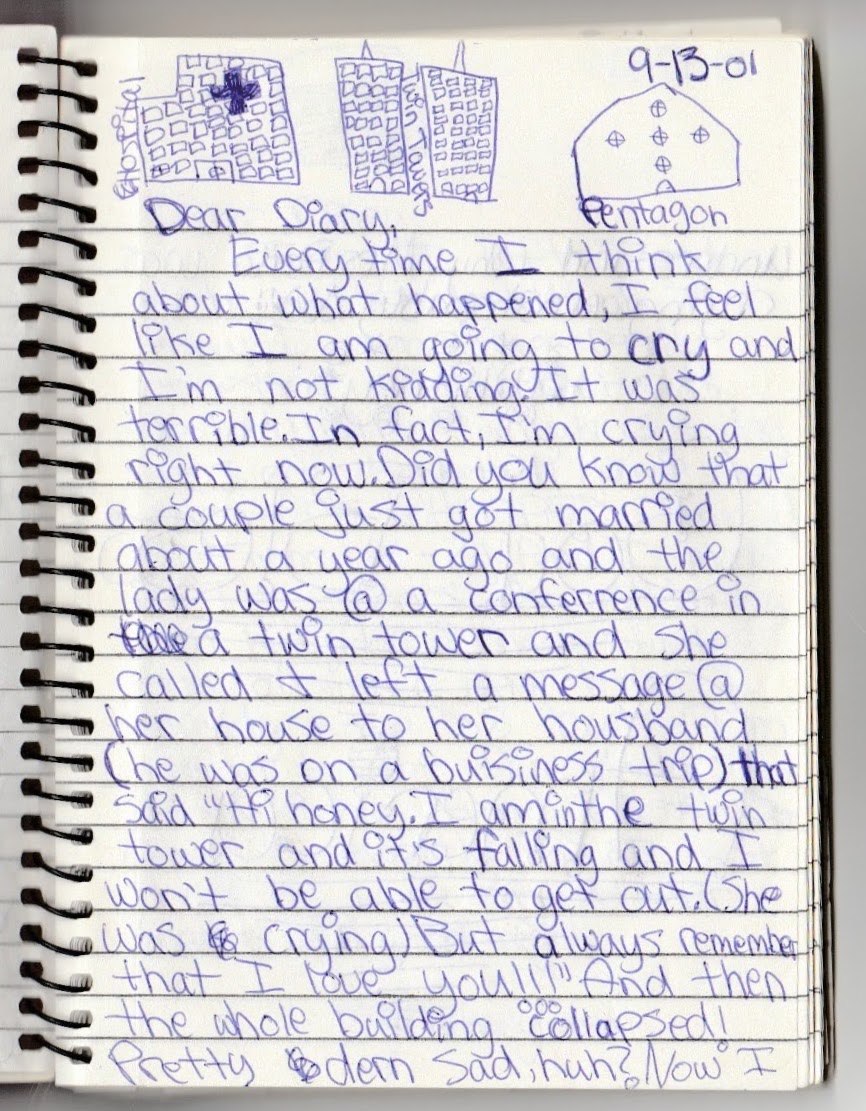 9-13-01
Hospital
Twin Towers
Pentagon
Dear Diary,
Every time I think
about what happened, I feel
like I am going to cry and
I'm not kidding. It was
terrible. In fact, I'm crying
right now. Did you know that
a couple just got married
about a year ago and the
lady was @ a conferrence in
a twin tower and she
called & left a message @
her house to her housband
(he was on a buisiness trip) that
said "Hi honey. I am in the twin
tower and it's falling and I
won't be able to get out. (She
was crying) But always remember
that I love you!!!" And then
the whole building collapsed!
Pretty dern sad, huh? Now I